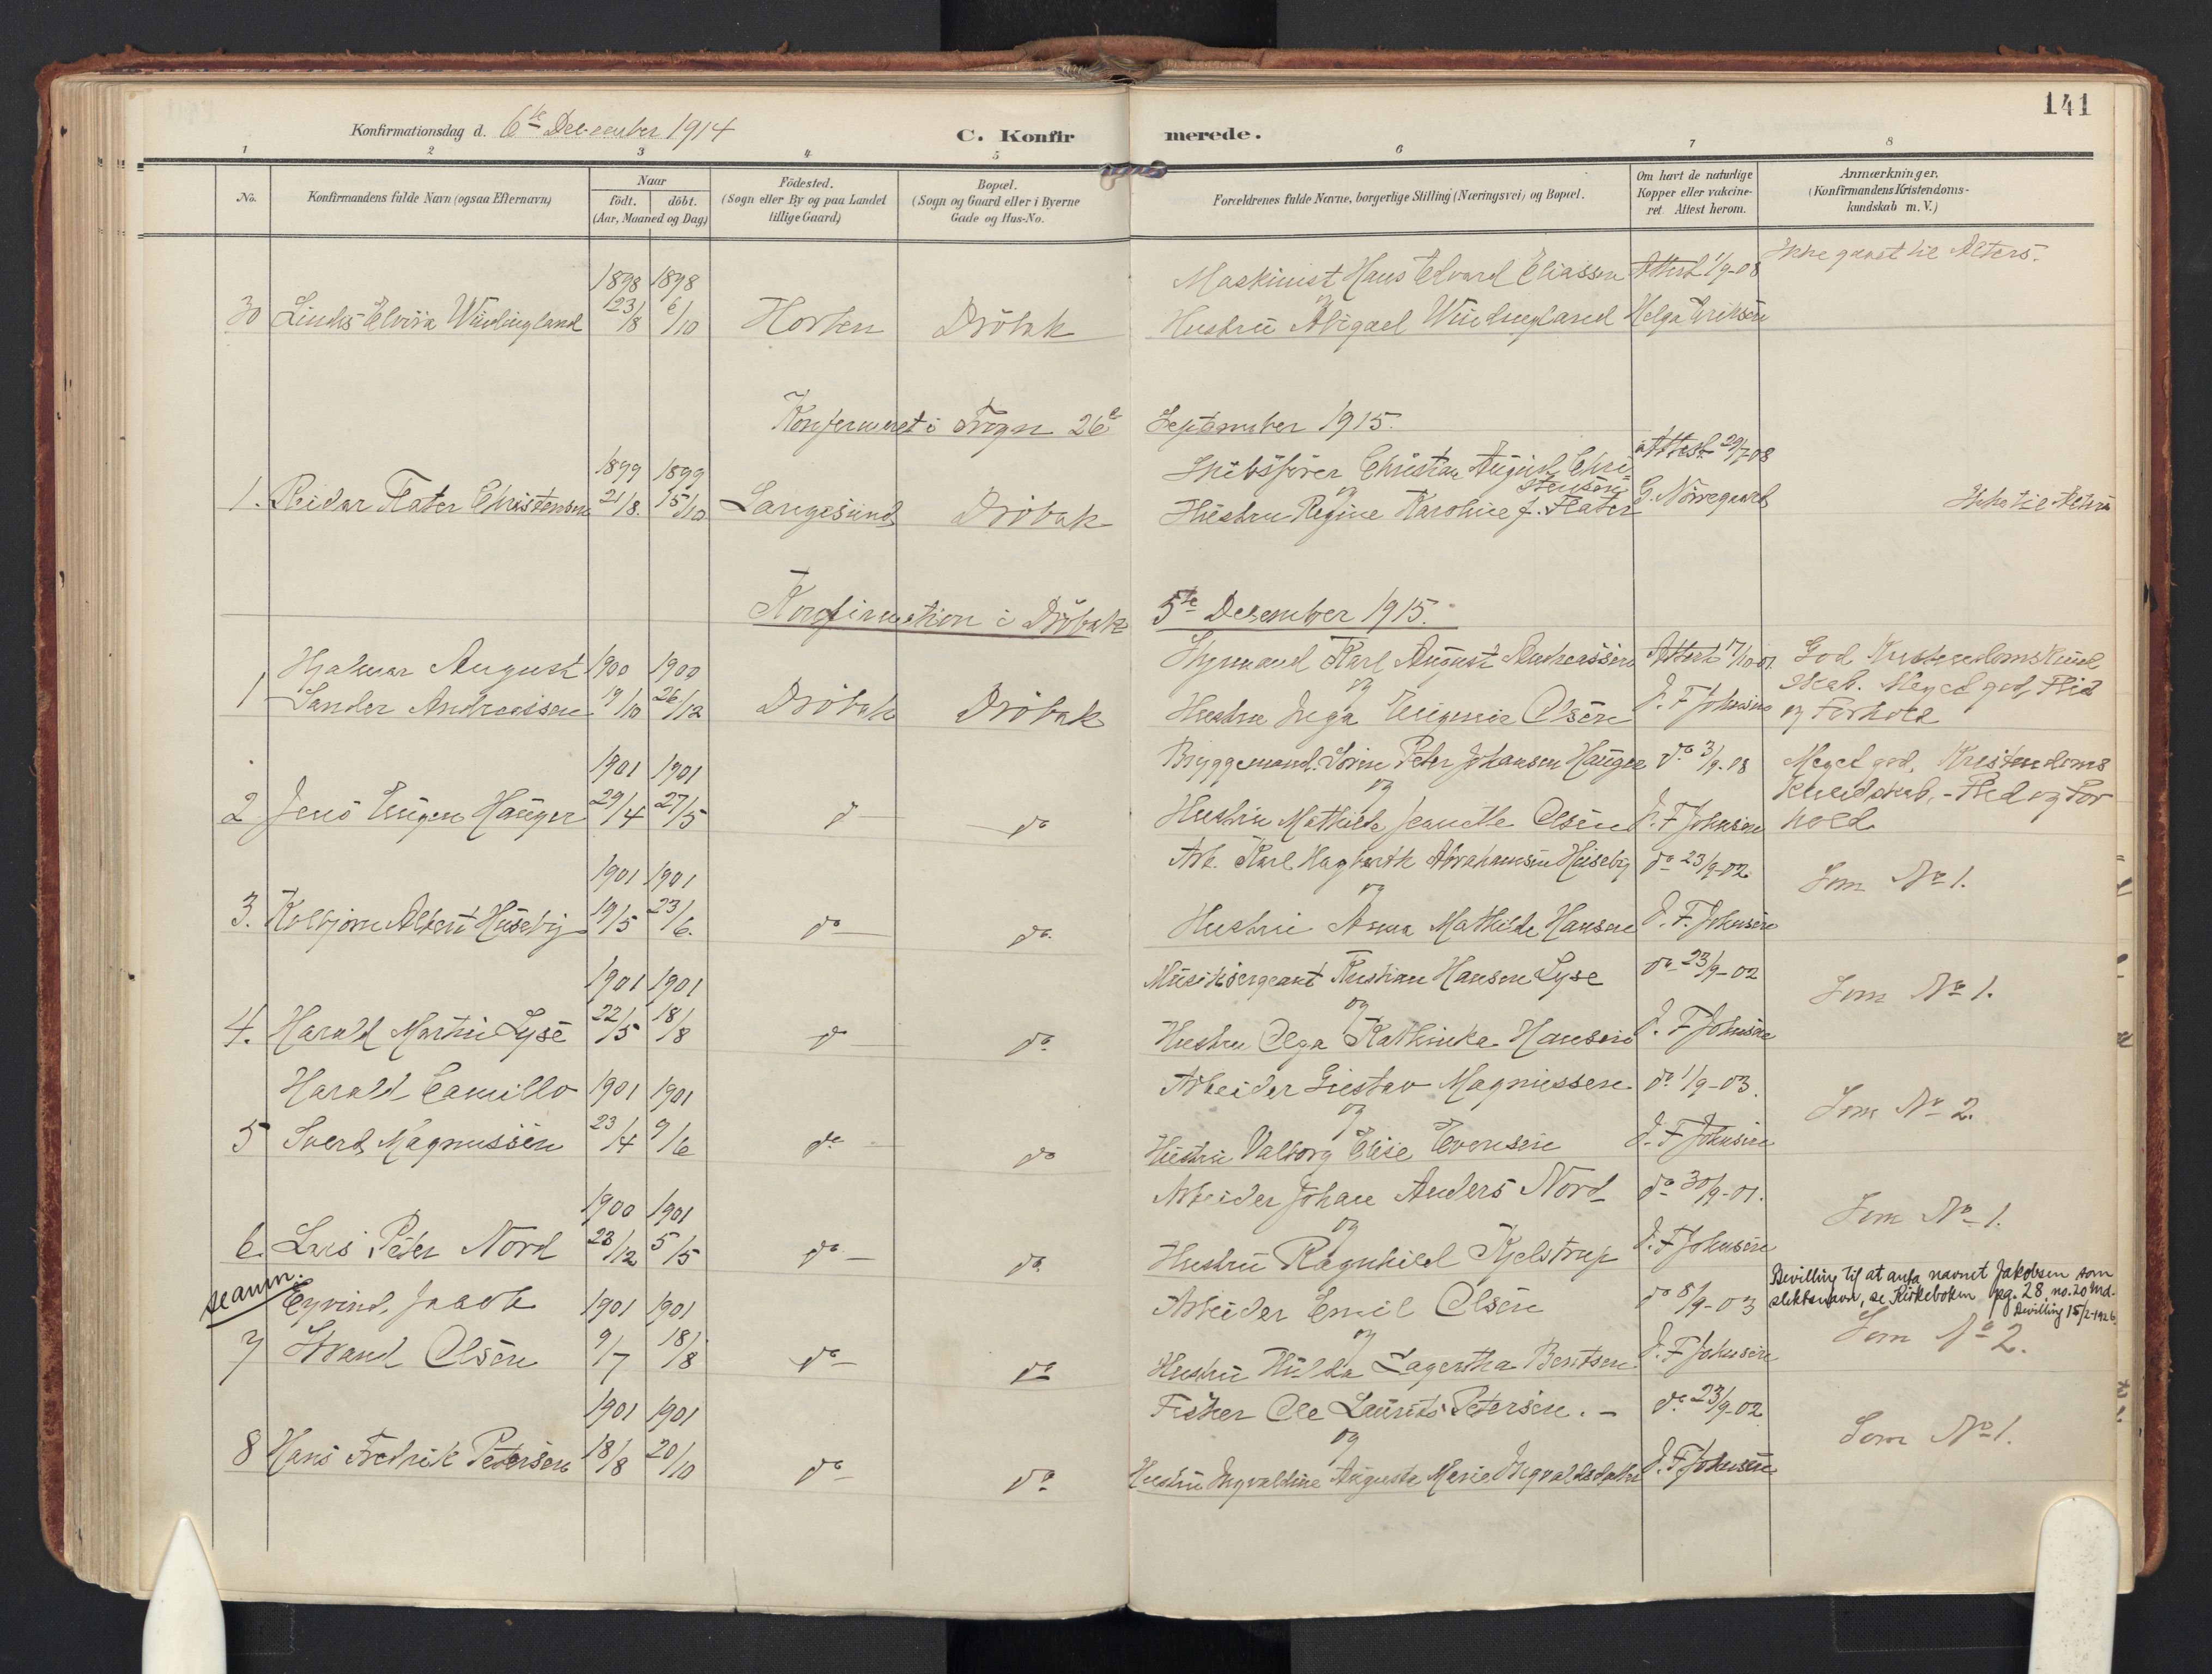 141
Konfirmationsdag d. 6te December 1914
C. Konfir merede.
1 2 3 4 5 6 7 8
No.
Konfirmandens fulde Navn (ogsaa Efternavn)
Naar
født. døbt.
(Aar, Maaned og Dag)
Födested.
(Sogn eller By og paa Landet
tillige Gaard)
Bopæl.
(Sogn og Gaard eller i Byerne
Gade og Hus-No.
Forældrenes fulde Navne, borgerlige Stilling (Næringsvei) og Bopæl.
Om havt de naturlige
Kopper eller vakcine-
ret. Attest herom.
Anmærkninger.
(Konfirmandens Kristendoms-
kundskab m. V.)
1898 1898 Maskinist Hans Edvard Eliassen Attest 1/9-08 Ikke gaaet til Alters.
30 Elvira 23/8 6/10 Horten Drøbak og Hustru Abigael Helga Eriksen
Konfirmeret i Frogn 26e September 1915.
1899 1899 Skibsfører Christian August Christensen Attest 29/7-08
1. Reidar Flater Christensen 21/8 15/10 Langesund Drøbak og Hustru Regine Karoline f. Flater G. Nørregaard Ikke til Alters
Konfirmation i Drøbak 5te Desember 1915.
Hjalmar August 1900 1900 Karl August Andreassen Attest God Kristendomskund
1 Sander Andreassen 19/10 26/12 Drøbak Drøbak og Hustru Inga Eugenie Olsen J. F. Johnsen skab. Meget god Flid
og Forhold
1901 1901 Bryggemand Søren Peter Johansen Hauger do 3/9-08 Meget god, Kristendoms
2 Jens Eugen Hauger 29/4 27/5 do do og Hustru Mathilde Jeanette Olsen J. F. Johnsen kundskab, - Flid og For
hold
1901 1901 Arb. Karl Hagbarth Abrahamsen Huseby do 23/9-02 Som No 1.
3. Kolbjørn Albert Huseby 19/5 23/6 do do og Hustru Anna Mathilde Hansen J. F. Johnsen
1901 1901 Musiksergeant Kristian Hansen Lyse do 23/9-02 Som No 1.
4. Harald Martin Lyse 22/5 18/8 do do og Hustru Olga Kathinka Hansen J. F. Johnsen
Harald Camillo 1901 1901 Arbeider Gustav Magnussen do 1/9-03. Som No 2.
5 Sverd Magnussen 23/4 9/6 do do og Hustru Valborg Elise Evensen J. F. Johnsen
1900 1901 Arbeider Johan Anders Nord do 30/9-01. Som No 1.
6. Lars Peter Nord 23/12 5/5 do do og Hustru Ragnhild Kjelstrup J. F. Johnsen
se anm.
Eyvind Jacob 1901 1901 Arbeider Emil Olsen do 8/9-03 Bevilling til at anta navnet Jakobsen som
slektsnavn, se Kirkeboken pg. 28, no. 20 Ind.
Bevilling 15/2-1926.
7 Strand Olsen 9/7 18/8 do do og Hustru Hulda Lagertha Berntsen J. F. Johnsen Som No 2.
1901 1901 Fisker Ole Laurits Petersen. - do 23/9-02 Som No 1.
8 Hans Fredrik Petersen 18/8 20/10 do do og Hustru Ingvaldine Augusta Marie Ingvaldsdatter J. F. Johnsen